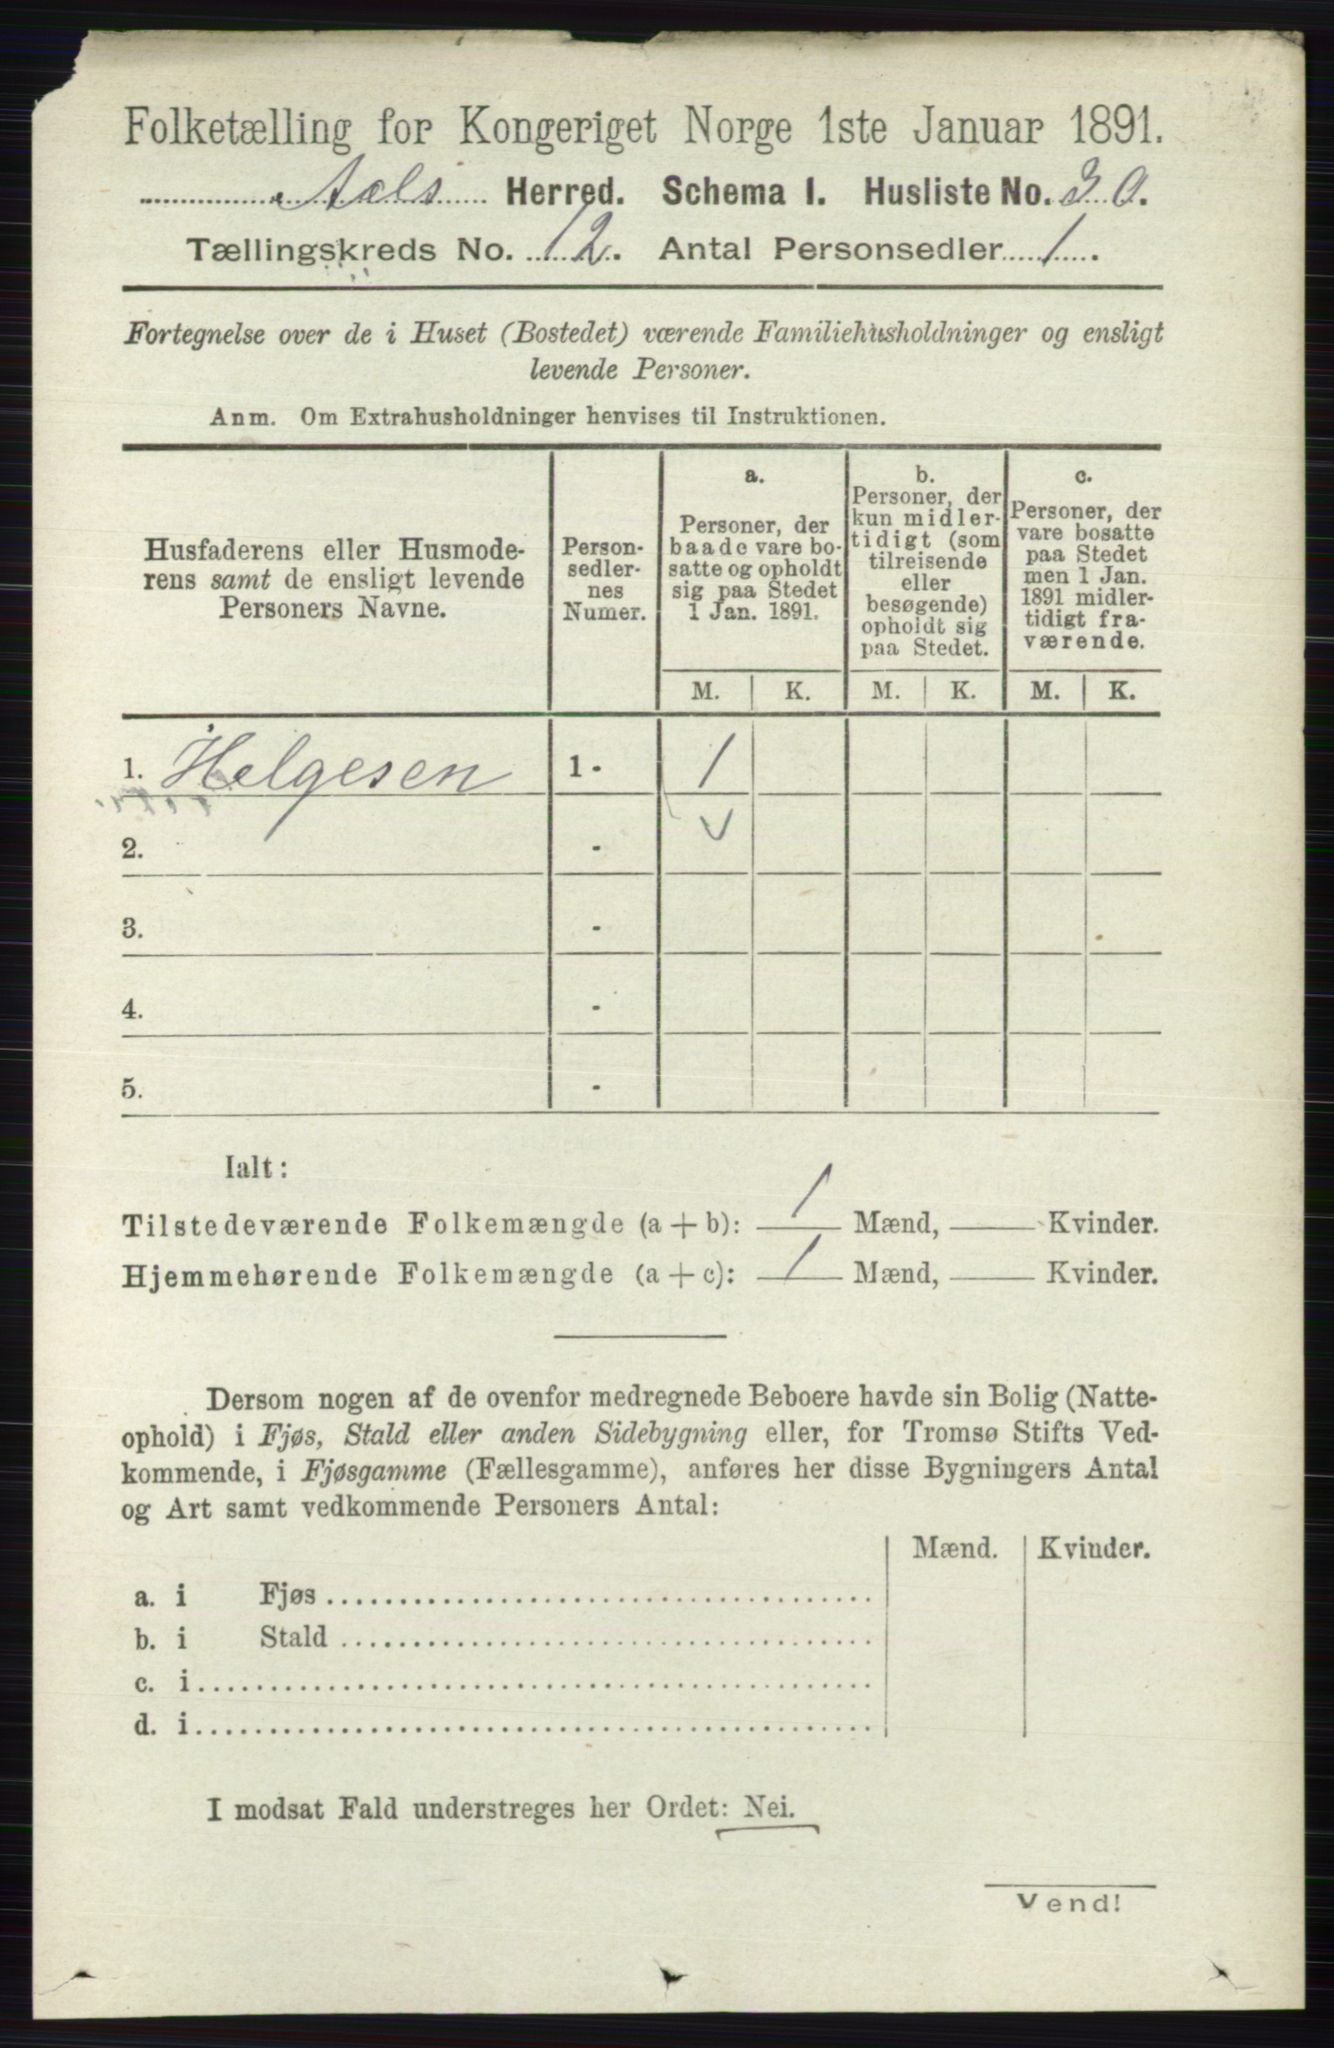 Folketælling for Kongeriget Norge 1ste Januar 1891.
Aals Herred. Schema I. Husliste No. 30.
Tællingskreds No. 12. Antal Personsedler 1.
Fortegnelse over de i Huset (Bostedet) værende Familiehusholdninger og ensligt
levende Personer.
Anm. Om Extrahusholdninger henvises til Instruktionen.
Husfaderens eller Husmode-
rens samt de ensligt levende
Personers Navne.
Person-
sedler-
nes
Numer.
a.
Personer, der
baade vare bo-
satte og opholdt
sig paa Stedet
1 Jan. 1891.
b.
Personer, der
kun midler-
tidigt (som
tilreisende
eller
besøgende)
opholdt sig
paa Stedet.
c.
Personer, der
vare bosatte
paa Stedet
men 1 Jan.
1891 midler-
tidigt fra-
værende.
M. K. M. K. M. K.
1. Helgesen 1 - 1
2. - ✓
3. -
4. -
5. -
Ialt:
Tilstedeværende Folkemængde (a + b): 1 Mænd, —— Kvinder.
Hjemmehørende Folkemængde (a + c): 1 Mænd, —— Kvinder.
Dersom nogen af de ovenfor medregnede Beboere havde sin Bolig (Natte-
ophold) i Fjøs, Stald eller anden Sidebygning eller, for Tromsø Stifts Ved-
kommende, i Fjøsgamme (Fællesgamme), anføres her disse Bygningers Antal
og Art samt vedkommende Personers Antal:
Mænd. Kvinder.
a. i Fjøs
b. i Stald
c. i
d. i
I modsat Fald understreges her Ordet: Nei.
Vend!